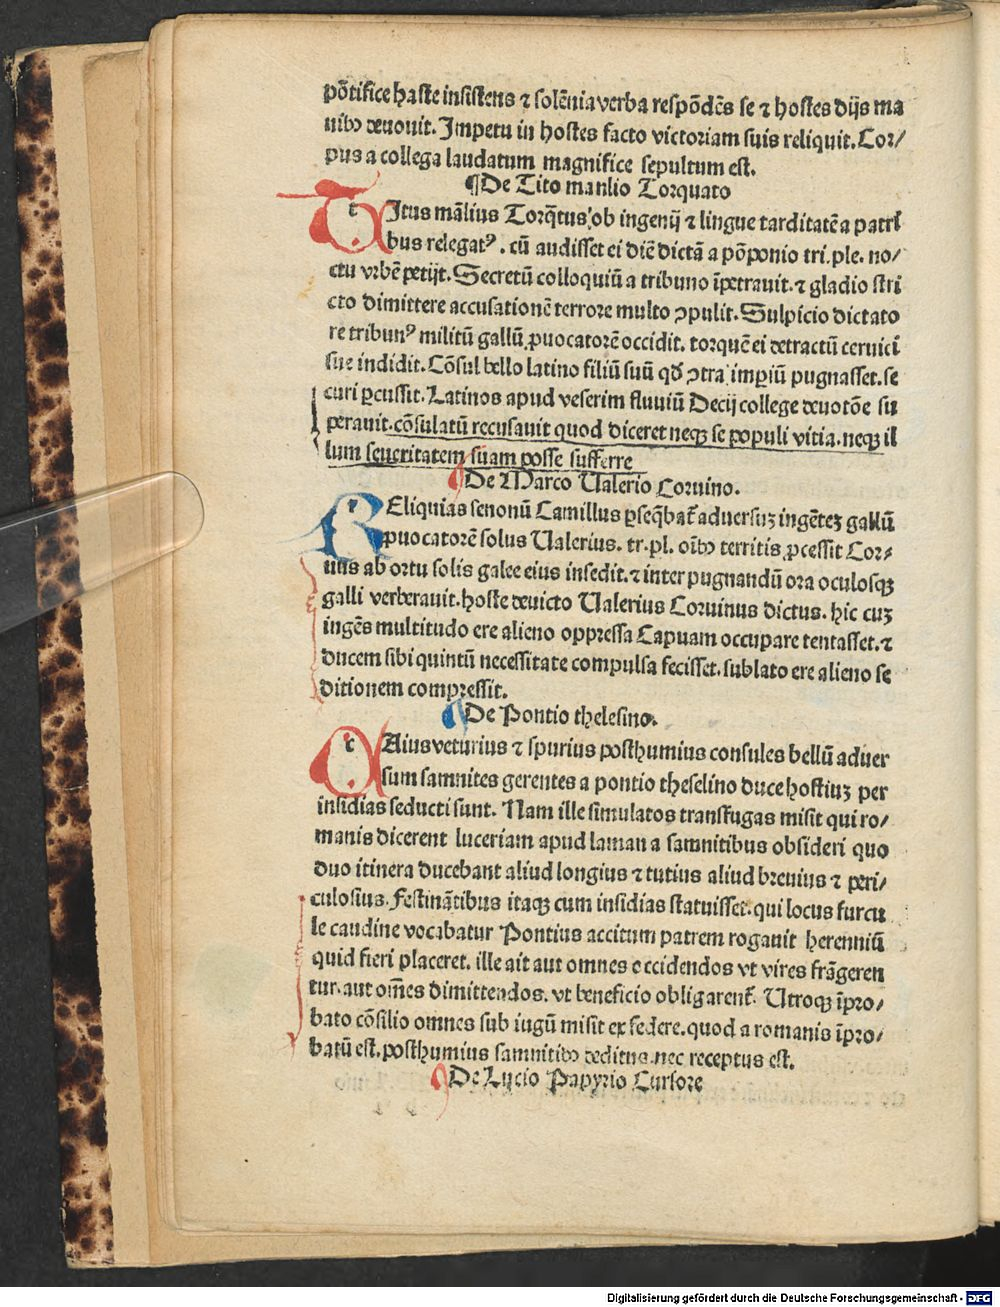 põtifice haste insistens ⁊ solẽnia verba respõdẽs se ⁊ hostes dijs ma
nibꝰ deuouit. Impetu in hostes facto victoriam suis reliquit. Cor/
pus a collega laudatum magnifice sepultum est.
¶De Tito manlio Torquato
TItus mãlius Torq̃tus ob ingenij ⁊ lingue tarditatẽ a patri
bus relegatꝰ. cũ audisset ei diẽ dictã a põponio tri. ple. no/
ctu vrbẽ petijt. Secretũ colloquiũ a tribuno ĩpetrauit. ⁊ gladio stri
cto dimittere accusationẽ terrore multo ꝯpulit. Sulpicio dictato
re tribunꝰ militũ gallũ ꝓuocatorẽ occidit. torquẽ ei detractũ ceruici
sue indidit. Cõsul bello latino filiũ suũ qđ ꝯtra imꝑiũ pugnasset. se
curi ꝑcussit. Latinos apud veserim fluuiũ Decij college deuotõe su
perauit. cõsulatũ recusauit quod diceret neqꝫ se populi vitia. neqꝫ il
lum seueritatem suam posse sufferre
¶De Marco Ualerio Coruino.
REliquias senonũ Camillus ꝑseq̃bat̃ aduersuꝫ ingẽteꝫ gallũ
ꝓuocatorẽ solus Ualerius. tr. pl. oĩbꝰ territis ꝓcessit Cor/
uus ab ortu solis galee eius insedit. ⁊ inter pugnandũ ora oculosqꝫ
galli verberauit. hoste deuicto Ualerius Coruinus dictus. hic cuꝫ
ingẽs multitudo ere alieno oppressa Capuam occupare tentasset. ⁊
ducem sibi quintũ necessitate compulsa fecisset. sublato ere alieno se
ditionem compressit.
¶De Pontio thelesino.
TAius veturius ⁊ spurius posthumius consules bellũ aduer
sum samnites gerentes a pontio theselino duce hostiuꝫ per
insidias seducti sunt. Nam ille simulatos transfugas misit qui ro/
manis dicerent luceriam apud laman a samnitibus obsideri quo
duo itinera ducebant aliud longius ⁊ tutius aliud breuius ⁊ peri/
culosius. Festinãtibus itaqꝫ cum insidias statuisset. qui locus furcu
le caudine vocabatur Pontius accitum patrem rogauit herenniũ
quid fieri placeret. ille ait aut omnes occidendos vt vires frãgeren
tur. aut om̃es dimittendos. vt beneficio obligarent̃. Utroqꝫ ĩpro/
bato cõsilio omnes sub iugũ misit ex federe. quod a romanis ĩpro/
batũ est. posthumius samnitibꝰ deditus. nec receptus est.
¶De Lucio Papyrio Cursore
Digitalisierung gefördert durch die Deutsche Forschungsgemeinschaft - DFG